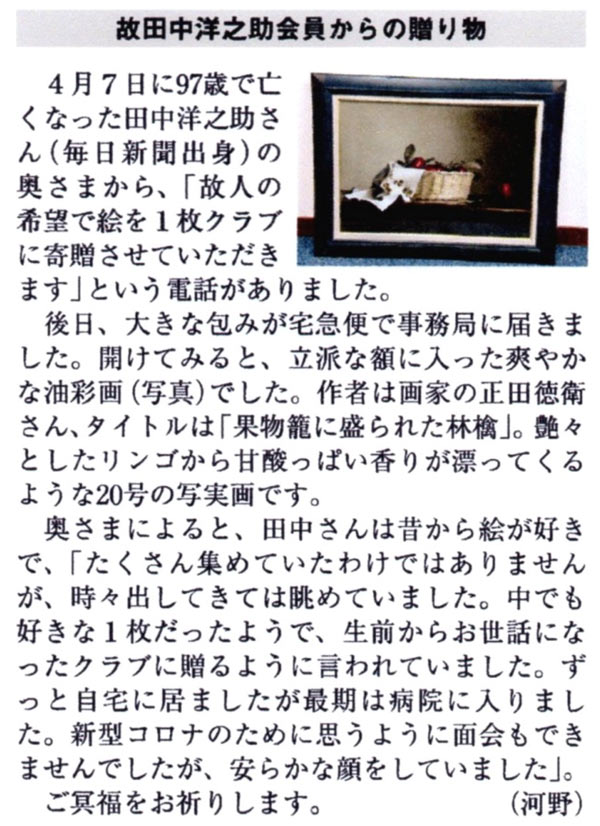 故田中洋之助会員からの贈り物
　４月７日に97歳で亡
くなった田中洋之助さ
ん（毎日新聞出身）の
奥さまから、「故人の
希望で絵を１枚クラブ
に寄贈させていただき
ます」という電話がありました。
　後日、大きな包みが宅急便で事務局に届きま
した。開けてみると、立派な額に入った爽やか
な油彩画（写真）でした。作者は画家の正田徳衛
さん、タイトルは「果物籠に盛られた林檎」。艶々
としたリンゴから甘酸っぱい香りが漂ってくる
ような20号の写実画です。
　奥さまによると、田中さんは昔から絵が好き
で、「たくさん集めていたわけではありません
が、時々出してきては眺めていました。中でも
好きな１枚だったようで、生前からお世話にな
ったクラブに贈るように言われていました。ず
っと自宅に居ましたが最期は病院に入りまし
た。新型コロナのために思うように面会もでき
ませんでしたが、安らかな顔をしていました」。
　ご冥福をお祈りします。　　　　　　　（河野）